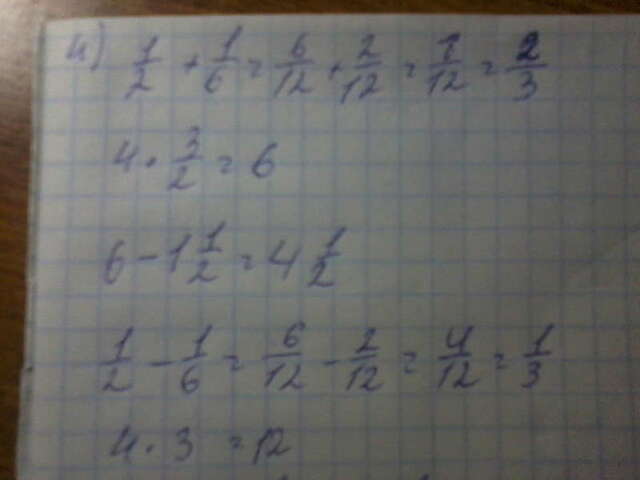 и) 1/2 + 1/6 = 6/12 + 2/12 = 8/12 = 2/3
4 · 3/2 = 6
6 - 1 1/2 = 4 1/2
1/2 - 1/6 = 6/12 - 2/12 = 4/12 = 1/3
4 · 3 = 12